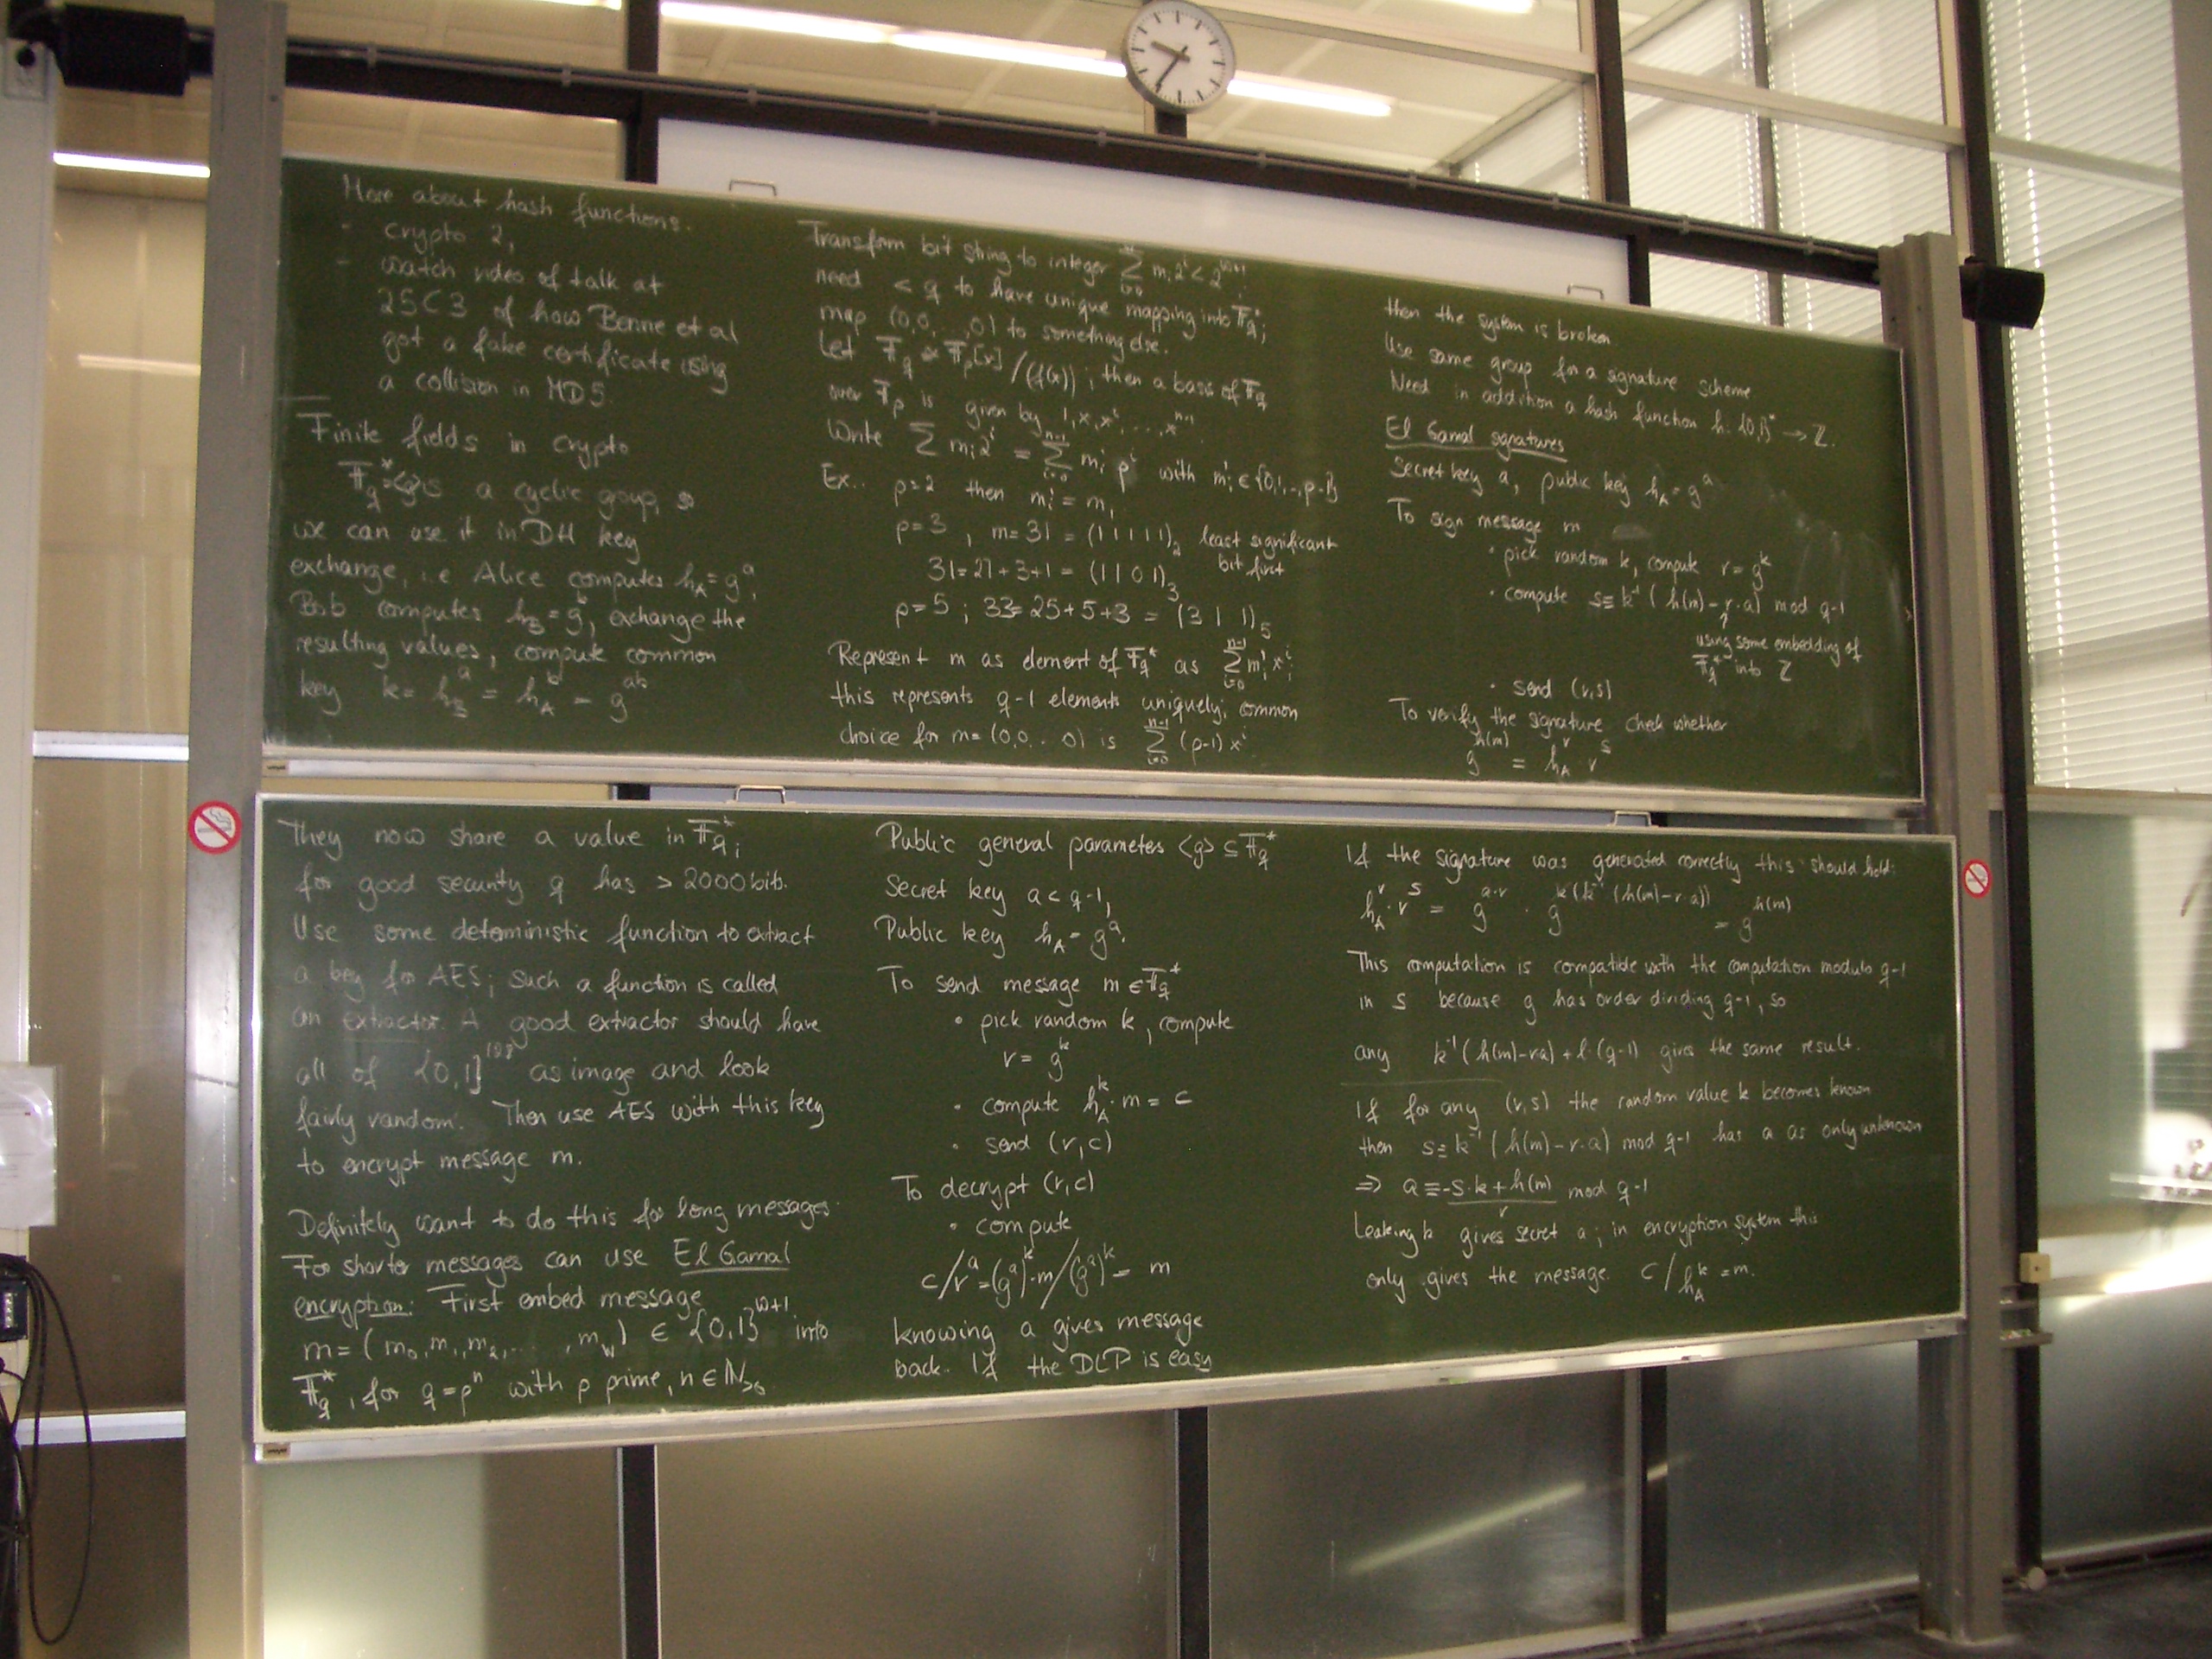 More about hash functions.
- crypto 2,
- watch video of talk at
25C3 of how Benne et al
got a fake certificate using
a collision in MD5.
Finite fields in crypto
𝔽_q^* = <g> is a cyclic group, so
we can use it in DH key
exchange, i.e. Alice computes h_A = g^a,
Bob computes h_B = g^b, exchange the
resulting values, compute common
key k = h_B^a = h_A^b = g^{ab}
They now share a value in 𝔽_q^*;
for good security q has > 2000 bits.
Use some deterministic function to extract
a key for AES; such a function is called
an extractor. A good extractor should have
all of {0,1}^{128} as image and look
fairly random. Then use AES with this key
to encrypt message m.
Definitely want to do this for long messages.
For shorter messages can use El Gamal
encryption: First embed message
m = (m_0, m_1, m_2, ..., m_w) ∈ {0,1}^{w+1} into
𝔽_q^*, for q = p^n with p prime, n ∈ ℕ_{>0}
Transform bit string to integer Σ_{i=0}^w m_i 2^i < 2^{w+1};
need < q to have unique mapping into 𝔽_q^*;
map (0,0,...,0) to something else.
Let 𝔽_q ≅ 𝔽_p[x]/(f(x)); then a basis of 𝔽_q
over 𝔽_p is given by 1, x, x^2, ..., x^{n-1}
Write Σ m_i 2^i = Σ_{i=0}^{n-1} m_i' p^i with m_i' ∈ {0,1,..,p-1}
Ex.. p=2 then m_i' = m_i
p=3, m=31 = (1 1 1 1 1)_2 least significant
bit first
31 = 27+3+1 = (1 1 0 1)_3
p=5; 33=25+5+3 = (3 1 1)_5
Represent m as element of 𝔽_q^* as Σ_{i=0}^{n-1} m_i' x^i;
this represents q-1 elements uniquely; common
choice for m = (0,0...0) is Σ_{i=0}^{n-1} (p-1) x^i
Public general parameters <g> ⊆ 𝔽_q^*
Secret key a < q-1,
Public key h_A = g^a.
To send message m ∈ 𝔽_q^*
• pick random k, compute
r = g^k
• compute h_A^k · m = c
• send (r,c)
To decrypt (r,c)
• compute
c/r^a = (g^a)^k · m/(g^a)^k = m
knowing a gives message
back. If the DLP is easy
then the system is broken
Use same group for a signature scheme
Need in addition a hash function h: {0,1}^* → ℤ.
El Gamal signatures
Secret key a, public key h_A = g^a
To sign message m
• pick random k, compute r = g^k
• compute s ≡ k^{-1} (h(m) - r·a) mod q-1
using some embedding of
𝔽_q^* into ℤ
• send (r,s)
To verify the signature check whether
g^{h(m)} = h_A^r r^s
If the signature was generated correctly this should hold:
h_A^r · r^s = g^{a·r} · g^{k(k^{-1}(h(m)-r·a))} = g^{h(m)}
This computation is compatible with the computation modulo q-1
in s because g has order dividing q-1, so
any k^{-1}(h(m)-ra) + l·(q-1) gives the same result.
If for any (r,s) the random value k becomes known
then s ≡ k^{-1} (h(m) - r·a) mod q-1 has a as only unknown
⇒ a ≡ (-s·k + h(m))/r mod q-1
Leaking k gives secret a; in encryption system this
only gives the message. c/h_A^k = m.